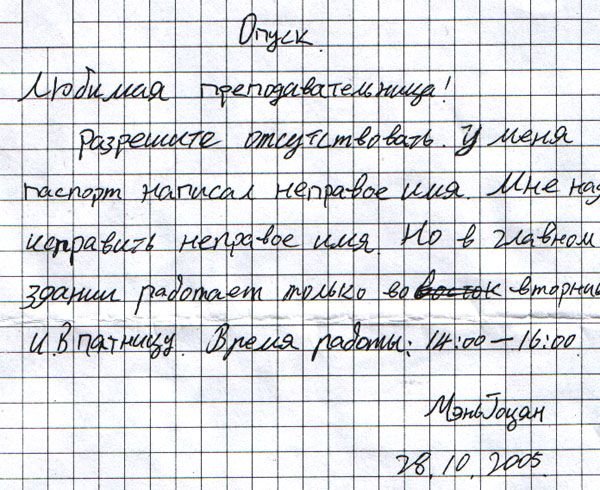 Опуск.
Любимая преподавательница!
Разрешите отсутствовать. У меня
паспорт написал неправое имя. Мне над
исправить неправое имя. Но в главном
здании работает только во восток вторник
и. В патницу. Время работы: 14:00 – 16:00
Мэнь Гоцян
28. 10. 2005.